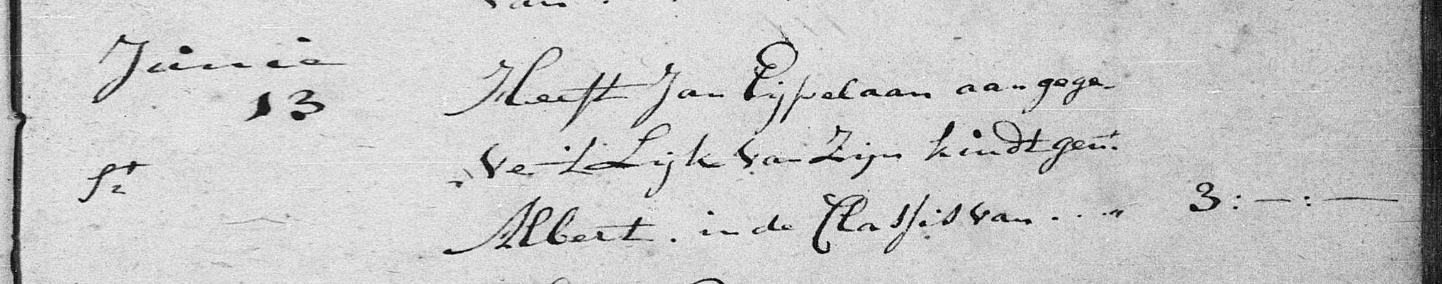 van
Junie
13
Heeft Jan Pijpelaan aangege-
ve 't Lijk van Zijn kindt gent.
Albert. in de Classis van . . . „ 3:—:—